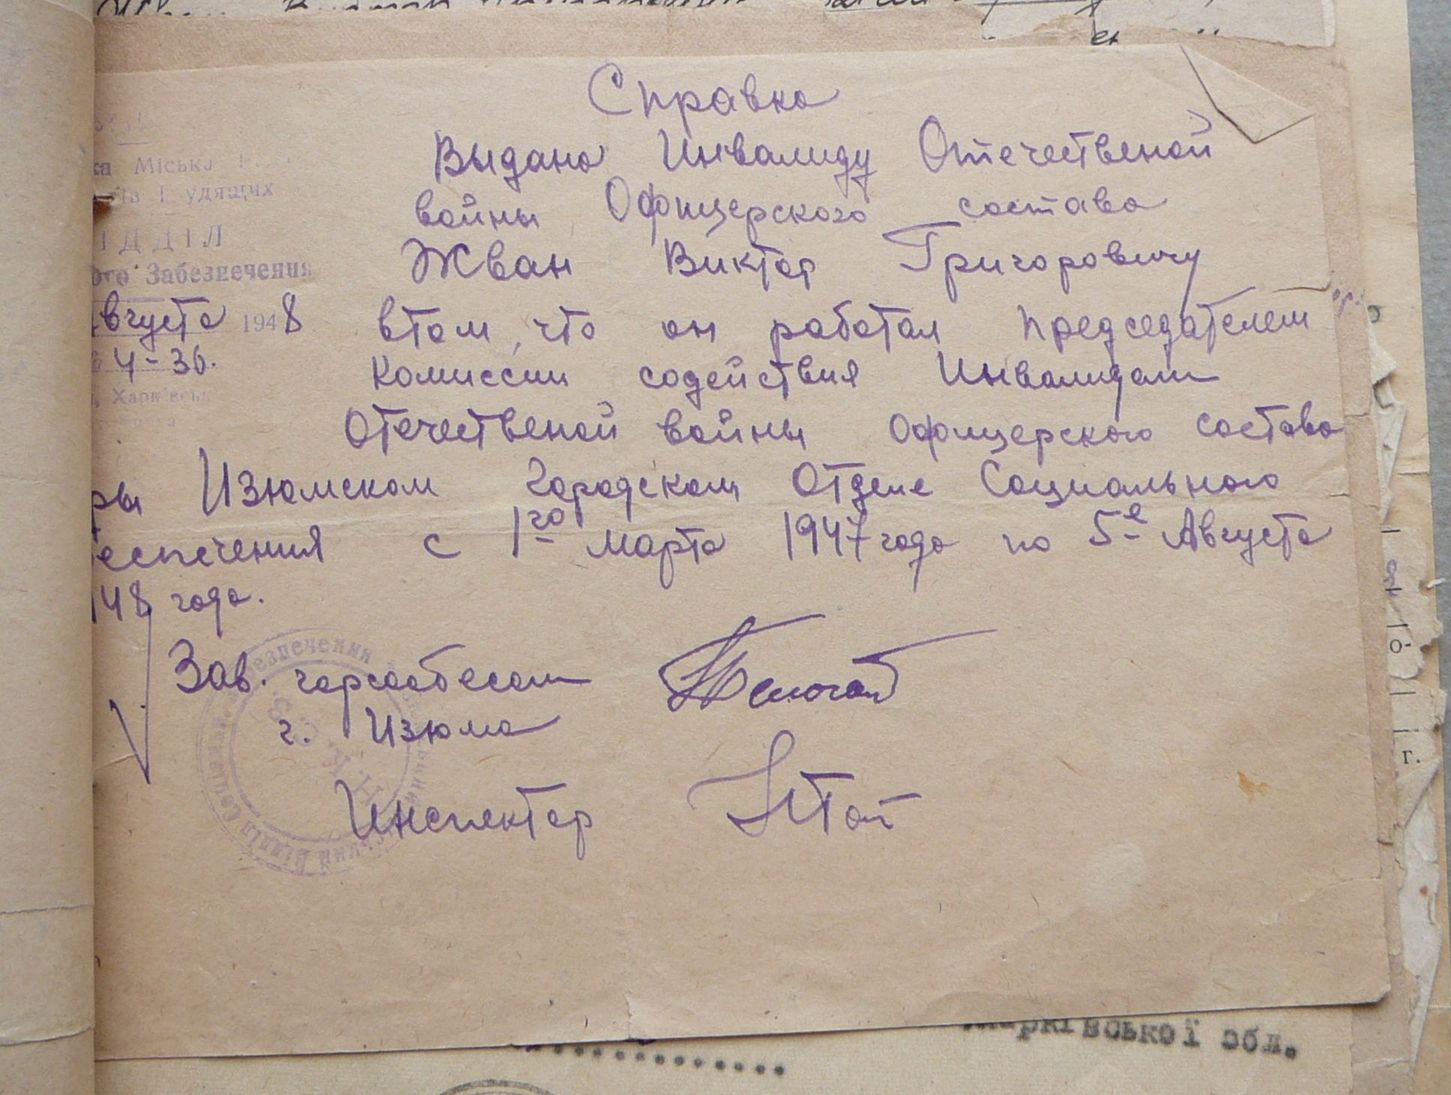 Справка
Выдана Инвалиду Отечественой
войны Офицерского состава
Жван Виктор Григоровичу
втом, что он работал председателем
комиссии содействия Инвалидам
Отечественой войны офицерского состава
ры Изюмском городском отделе Социального
еспечения с 1го марта 1947 года по 5е Августа
148 года.
Зав. горсобесом
г. Изюма
Инспектор
Міська
удящих
ІДДІЛ
Забезпечення
вгуста 1948
4-36.
Харківсь
Харківської обл.
г.